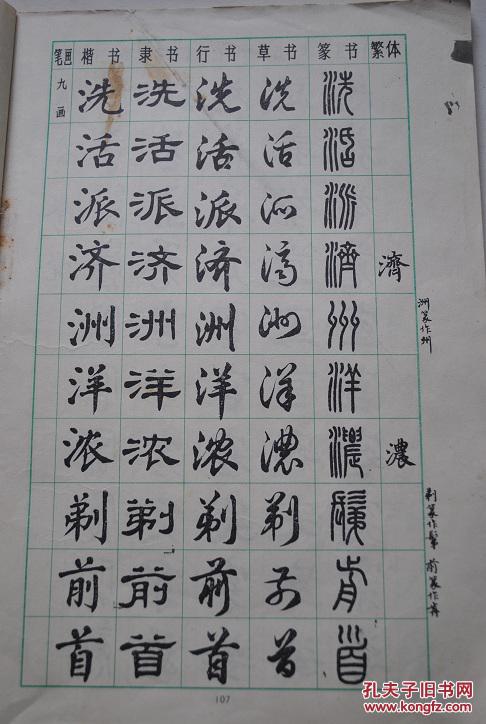 笔画 楷书 隶书 行书 草书 篆书 繁体
九画
洗 洗 洗 洗 洗
活 活 活 活 活
派 派 派 派 派
济 济 济 济 濟 濟
洲 洲 洲 洲 州
洋 洋 洋 洋 洋
浓 浓 浓 濃 濃 濃
剃 剃 剃 剃
前 前 前 前
首 首 首 首 首
洲篆作州
剃篆作
前篆作
107
孔夫子旧书网
KONGFZ.COM